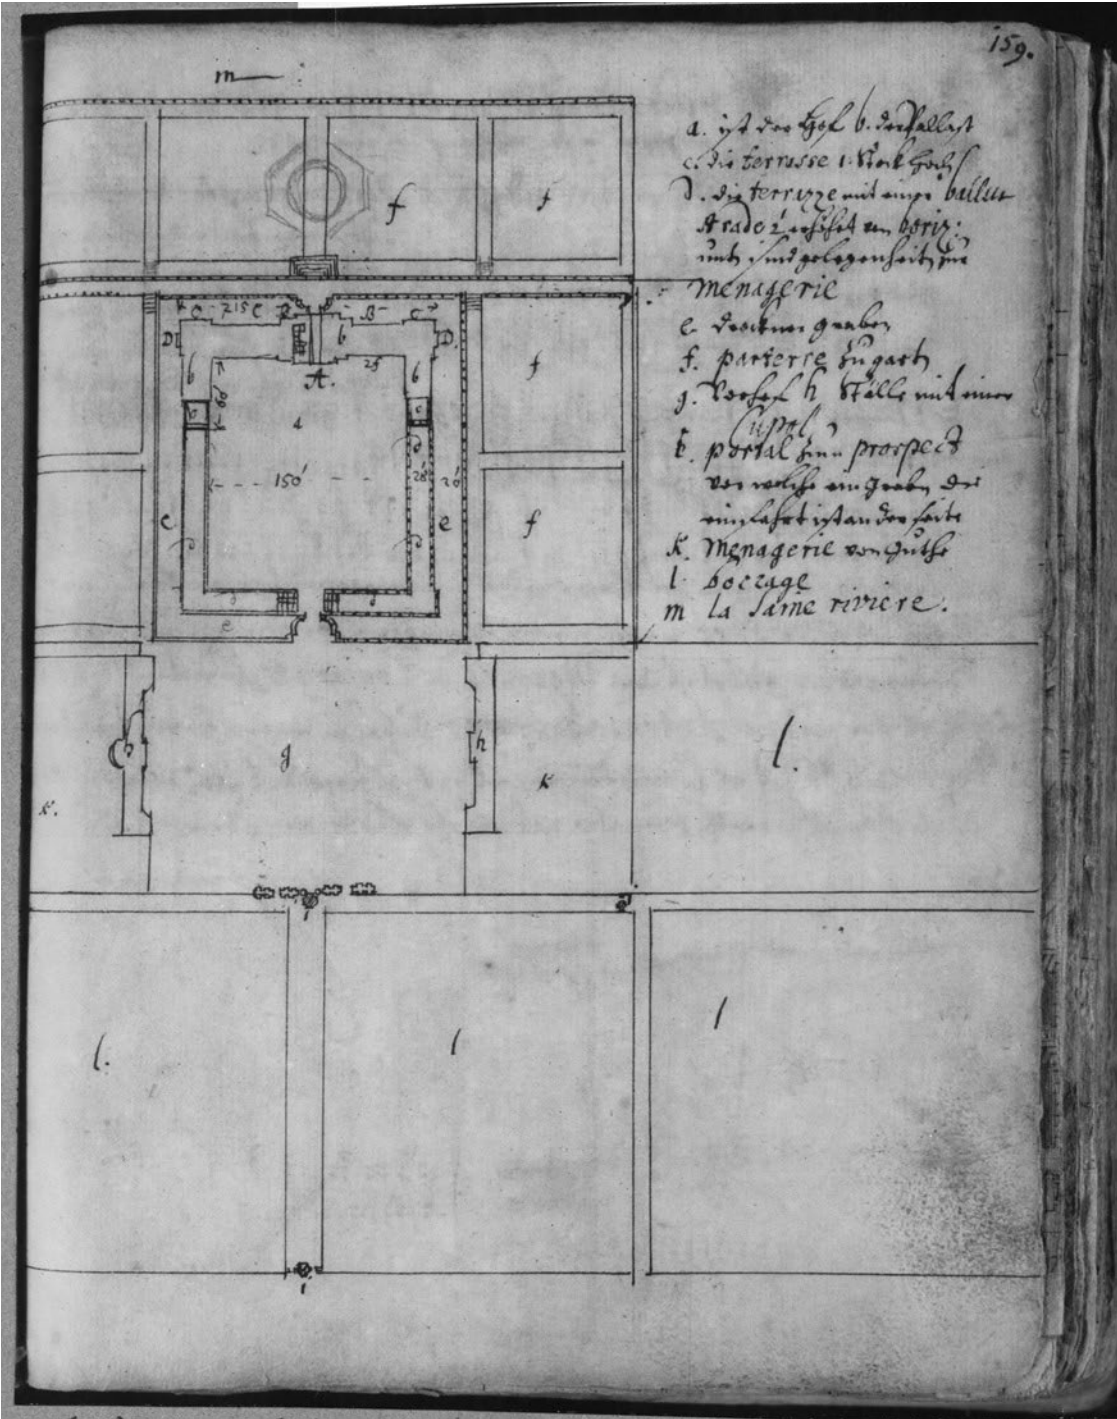 159.
m
a. ist der Hof b. der Pallast
c. die terrasse 1. Stock hoch
D. die terrazze mit einer ballu
strade 2' erhöhet von voriz:
unten sind gelegenheiten zur
Menagerie
e. drockner graben
f. parterre zu garten
g. Vorhof h Ställe mit einer
Cupol
portal zum prospect
vor welche ein graben die
einfahrt ist an der seite
K. Menagerie von
l. boccage
m la saine riviere.
f f
C 215 C B B C
D b D.
b 25 b
A.
60
c c
a f
150' 28' 20'
c e f
g g
e
h g h
K. K l.
i
l. l l
i